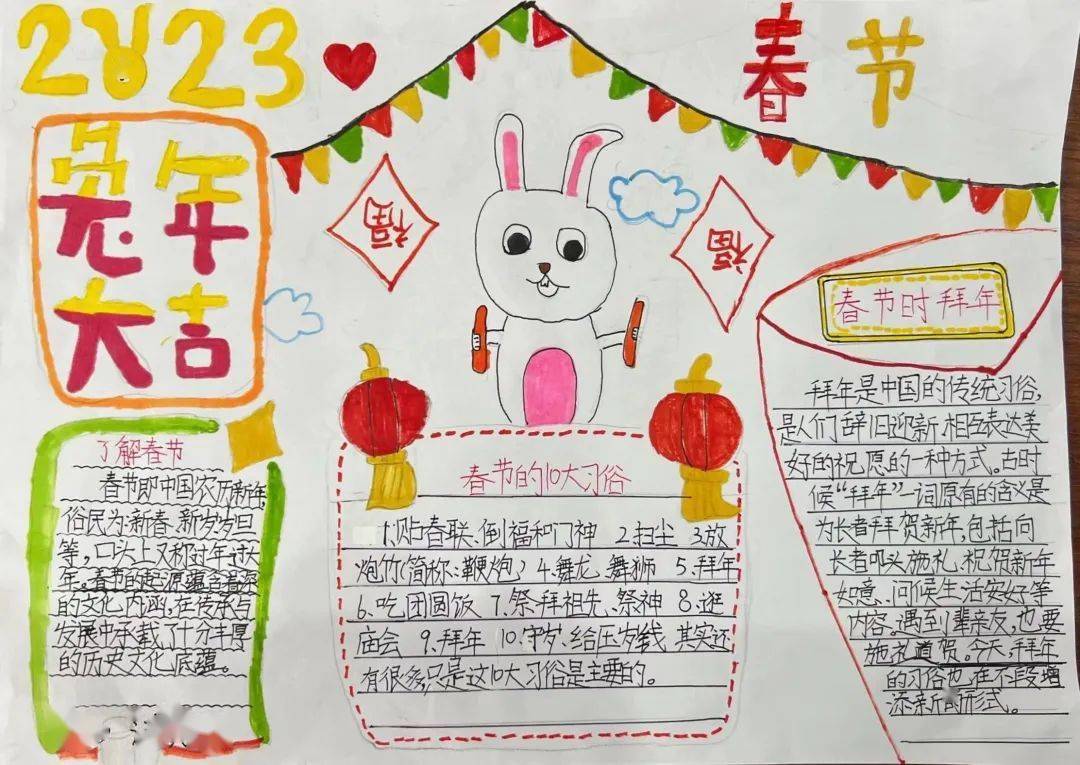 2023
春节
兔年
大吉
福
福
了解春节
春节即中国农历新年,
俗民为:新春、新岁、岁旦
等,口头上又称过年、过大
年。春节的起源蕴含着深
的文化内涵,在传承与
发展中承载了十分丰厚
的历史文化底蕴。
春节的10大习俗
1.贴春联、倒福和门神 2.扫尘 3.放
炮竹(简称:鞭炮) 4.舞龙、舞狮 5.拜年
6.吃团圆饭 7.祭拜祖先、祭神 8.逛
庙会 9.拜年 10.守岁、给压岁钱 其实还
有很多,只是这10大习俗是主要的。
春节时拜年
拜年是中国的传统习俗,
是人们辞旧迎新、相互表达美
好的祝愿的一种方式。古时
候“拜年”一词原有的含义是
为长者拜贺新年,包括向
长者叩头施礼、祝贺新年
如意、问候生活安好等
内容。遇到辈亲友,也要
施礼道贺。今天,拜年
的习俗也在不段增
添新的形式。